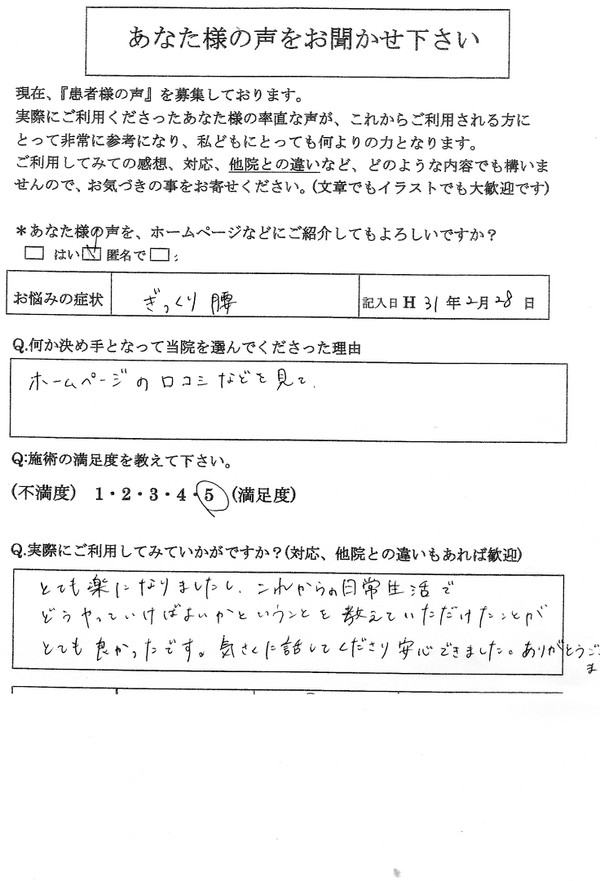 あなた様の声をお聞かせ下さい
現在、『患者様の声』を募集しております。
実際にご利用くださったあなた様の率直な声が、これからご利用される方に
とって非常に参考になり、私どもにとっても何よりの力となります。
ご利用してみての感想、対応、他院との違いなど、どのような内容でも構いま
せんので、お気づきの事をお寄せください。(文章でもイラストでも大歓迎です)
＊あなた様の声を、ホームページなどにご紹介してもよろしいですか？
はい 匿名で
お悩みの症状 ぎっくり腰 記入日 H 31 年 2 月 28 日
Q.何か決め手となって当院を選んでくださった理由
ホームページの口コミなどを見て.
Q:施術の満足度を教えて下さい。
(不満度) 1・2・3・4・5 (満足度)
Q.実際にご利用してみていかがですか？(対応、他院との違いもあれば歓迎)
とても楽になりましたし、これからの日常生活で
どうやっていけばよいかということを教えていただけたことが
とても良かったです。気さくに話してくださり安心できました。ありがとうご
ま